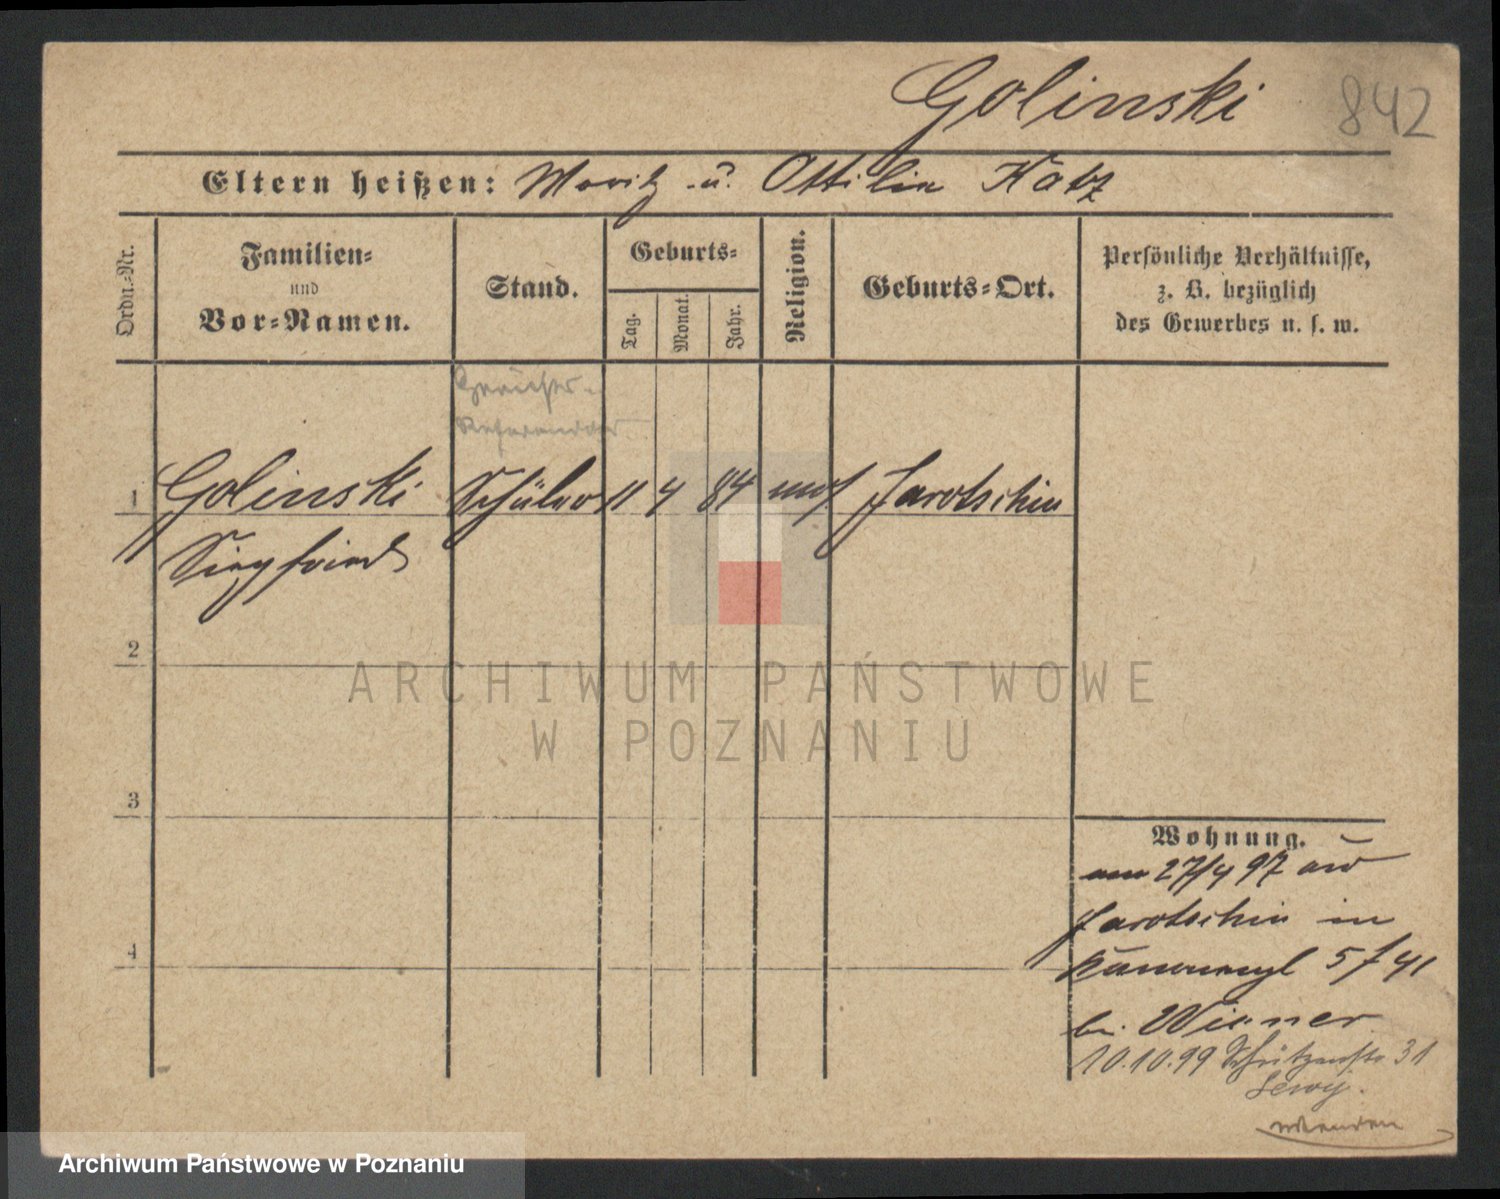 Golinski 842
Eltern heißen: Moritz u. Ottilie Katz
Ordn.-Nr.
Familien-
und
Vor-Namen.
Stand.
Geburts-
Tag.
Monat.
Jahr.
Religion.
Geburts-Ort.
Persönliche Verhältnisse,
z. B. bezüglich
des Gewerbes u. s. w.
Referendar
1 Golinski Schüler 11 4 84 mos Jarotschin
Siegfried
2
3
4
Wohnung.
am 27/4 97 aus
Jarotschin in
5/41
bei Wiener
10.10.99 Schützenstr 31
Lewy.
ARCHIWUM PAŃSTWOWE
W POZNANIU
Archiwum Państwowe w Poznaniu